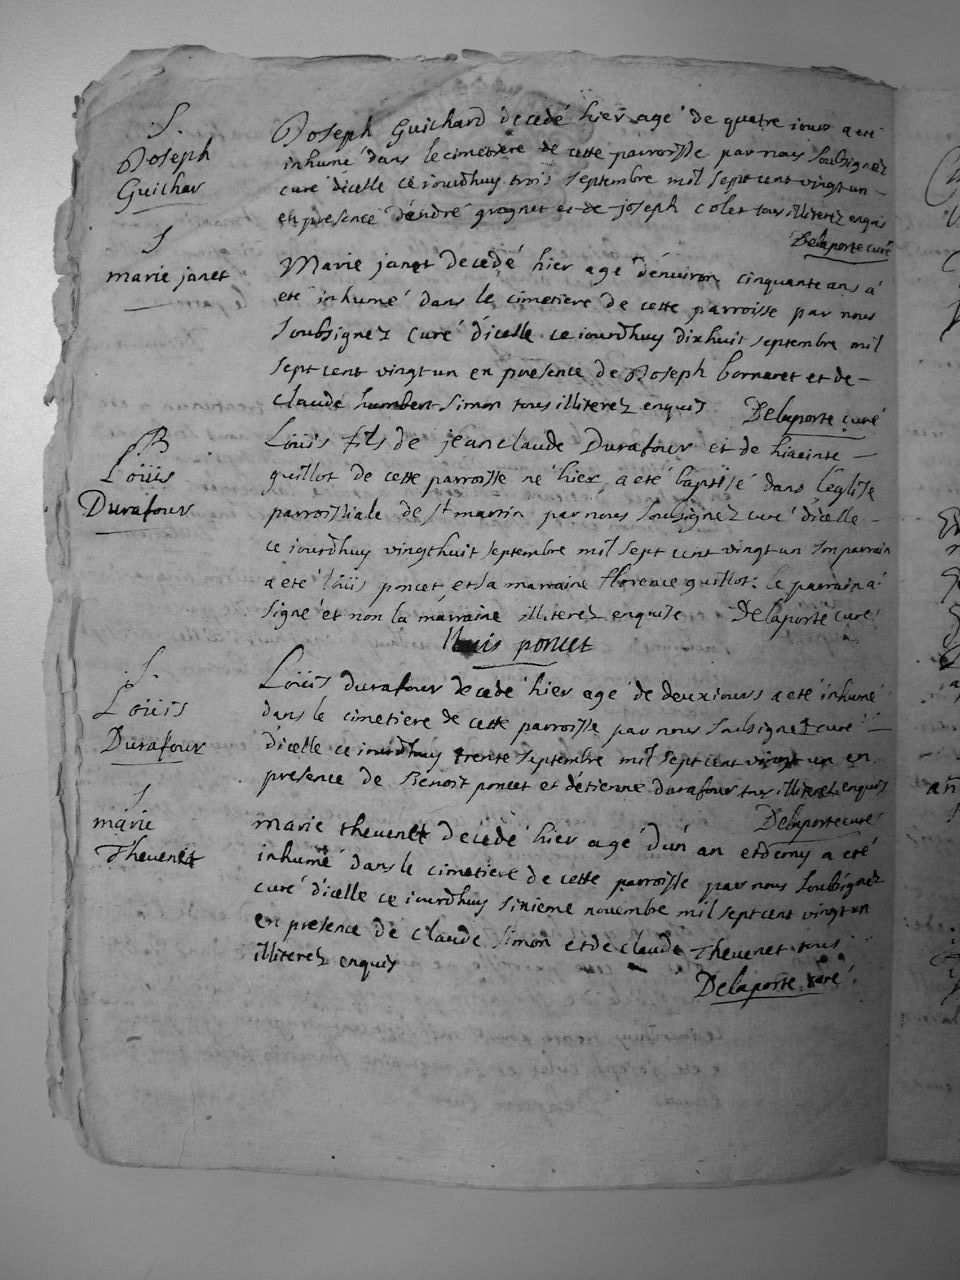 S.
Joseph
Guilhar
Joseph Guichard decedé hier agé de quatre iour a eté
inhumé dans le cimetiere de cette parroisse par nous soubsignez
curé dicelle ce iourdhuy trois septembre mil sept cent vingt un –
en presence dandré grognet et de joseph colet tous illiterez enquis
Delaporte curé
S
marie janet
Marie janet decedé hier agé dénuiron cinquante ans a
eté inhumé dans le cimetiere de cette parroisse par nous
soubsignez curé dicelle ce iourdhuy dixhuit septembre mil
sept cent vingt un en presence de Joseph borneret et de –
claude humbert simon tous illiterez enquis Delaporte curé
B
Loüis
Durafour
Loüis fils de jean claude Durafour et de hiacinte –
guillot de cette parroisse né hier, a eté baptisé dans léglise
parroissiale de st martin par nous soubsignez curé dicelle –
ce iourdhuy vingthuit septembre mil sept cent vingt un son parrain
a eté loüis poncet, et sa marraine florence guillot: le parrain a
signé et non la marraine illiterez enquise Delaporte curé
poncet
S.
Loüis
Durafour
Loüis durafour decedé hier agé de deux iours a eté inhumé
dans le cimetiere de cette parroisse par nous soubsignez curé –
dicelle ce iourdhuy trente septembre mil sept cent vingt un en
presence de Benoit poncet et détienne durafour tous illiterez enquis
Delaporte curé
S
marie
Thevenet
marie thevenet decedé hier agé dún an et demy a eté
inhumé dans le cimetiere de cette parroisse par nous soubsignez
curé dicelle ce iourdhuy sixieme novembre mil sept cent vingt un
en presence de claude simon et de claude Thevenet tous
illiterez enquis
Delaporte curé